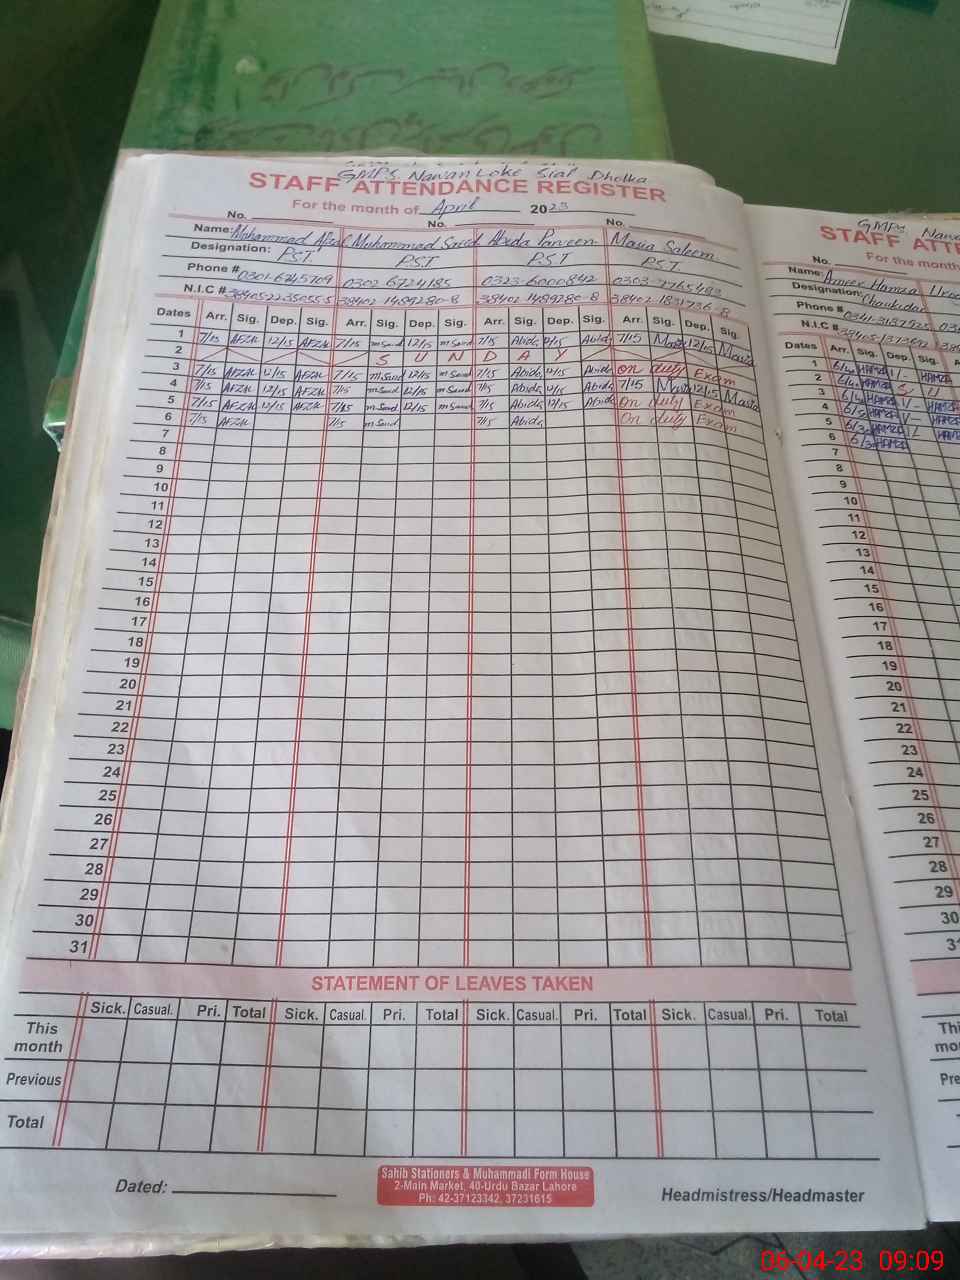 GMPS. Nawan Loke Sial Dholka
STAFF ATTENDANCE REGISTER
For the month of April 2023
No. No. No.
Name: Mohammad Afzal Muhammad Saeed Abida Parveen Maria Saleem
Designation: P.S.T. P.S.T P.S.T P.S.T.
Phone # 0301-6745709 0302 6724185 0323-6000842
N.I.C # 38402-1489280-8 38402-1489280-8
Dates Arr. Sig. Dep. Sig. Arr. Sig. Dep. Sig. Arr. Sig. Dep. Sig. Arr. Sig. Dep. Sig.
1 7/15 AFZAL 12/15 AFZAL 7/15 m Saeed 12/15 m Saeed 7/15 Abida 12/15 Abida 7/15 Maria 12/15 Maria
2 S U N D A Y
3 7/15 AFZAL 12/15 AFZAL 7/15 m Saeed 12/15 m Saeed 7/15 Abida 12/15 Abida on duty Exam
4 7/15 AFZAL 12/15 AFZAL 7/15 m Saeed 12/15 m Saeed 7/15 Abida 12/15 Abida 7/15 Maria 12/15 Maria
5 7/15 AFZAL 12/15 AFZAL 7/15 m Saeed 12/15 m Saeed 7/15 Abida 12/15 Abida On duty Exam
6 7/15 AFZAL 7/15 m Saeed 7/15 Abida On duty Exam
7
8
9
10
11
12
13
14
15
16
17
18
19
20
21
22
23
24
25
26
27
28
29
30
31
STATEMENT OF LEAVES TAKEN
Sick. Casual. Pri. Total Sick. Casual. Pri. Total Sick. Casual. Pri. Total Sick. Casual. Pri. Total
This month
Previous
Total
Dated:
Sahib Stationers & Muhammadi Form House
2-Main Market, 40-Urdu Bazar Lahore
Ph: 42-37123342, 37231615
Headmistress/Headmaster
GMPS. Nawa
STAFF ATTE
For the month
No.
Name: Ameer Hamza
Designation: Chaukidar
Phone # 0341-3187925
N.I.C #
Dates Arr. Sig. Dep. Sig.
1 HAMZA HAMZA
2 HAMZA
3 HAMZA HAMZA
4 HAMZA HAMZA
5 HAMZA HAMZA
6 HAMZA
7
8
9
10
11
12
13
14
15
16
17
18
19
20
21
22
23
24
25
26
27
28
29
30
06-04-23 09:09